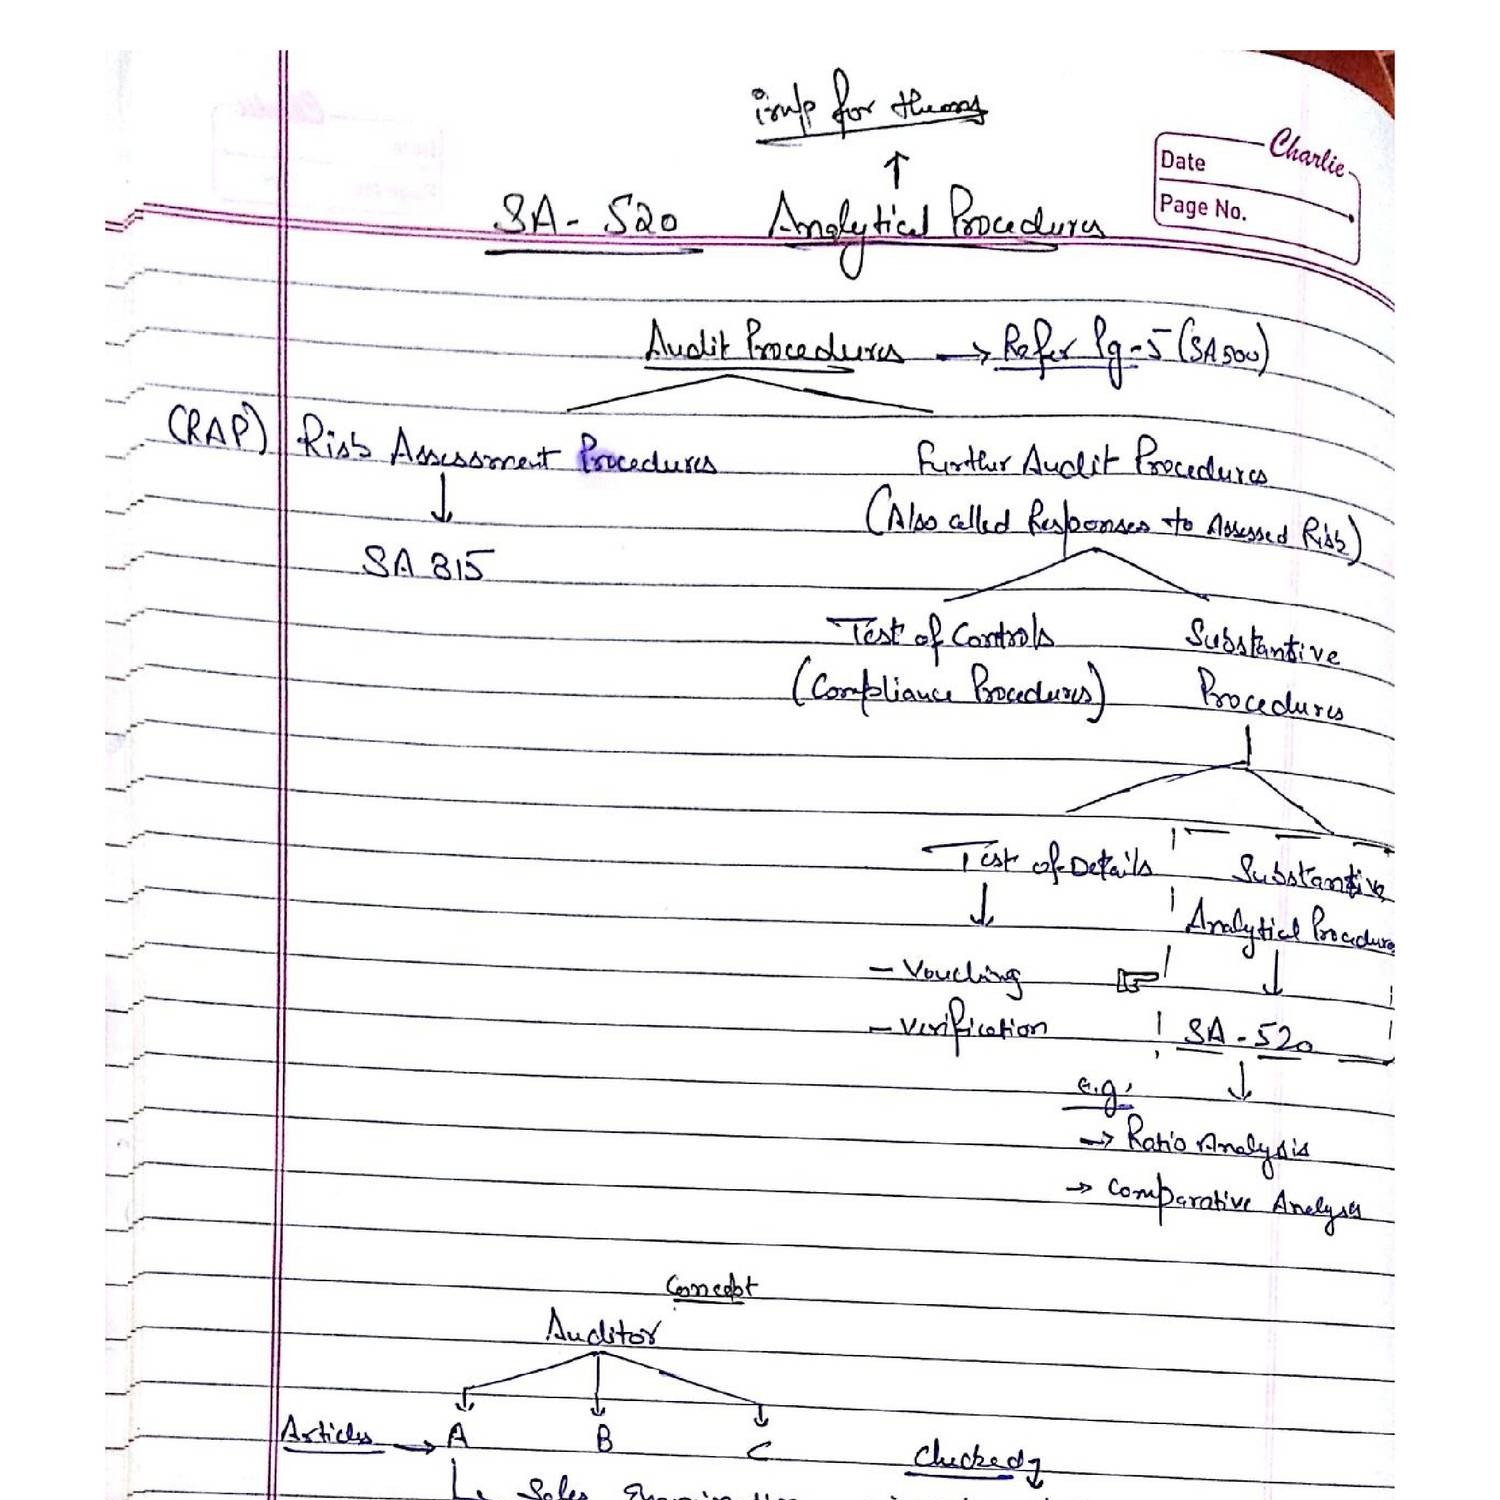 imp for theory
Charlie
Date
Page No.
SA - 520 Analytical Procedures
Audit Procedures → Refer Pg-5 (SA500)
(RAP) Risk Assessment Procedures
Further Audit Procedures
(Also called Responses to Assessed Risk)
SA 315
Test of Controls
(Compliance Procedures)
Substantive
Procedures
Test of Details
Substantive
Analytical Procedure
- Vouching
- Verification
SA - 520
e.g.
→ Ratio Analysis
→ Comparative Analysis
Concept
Auditor
Articles → A B C Checked
Sales